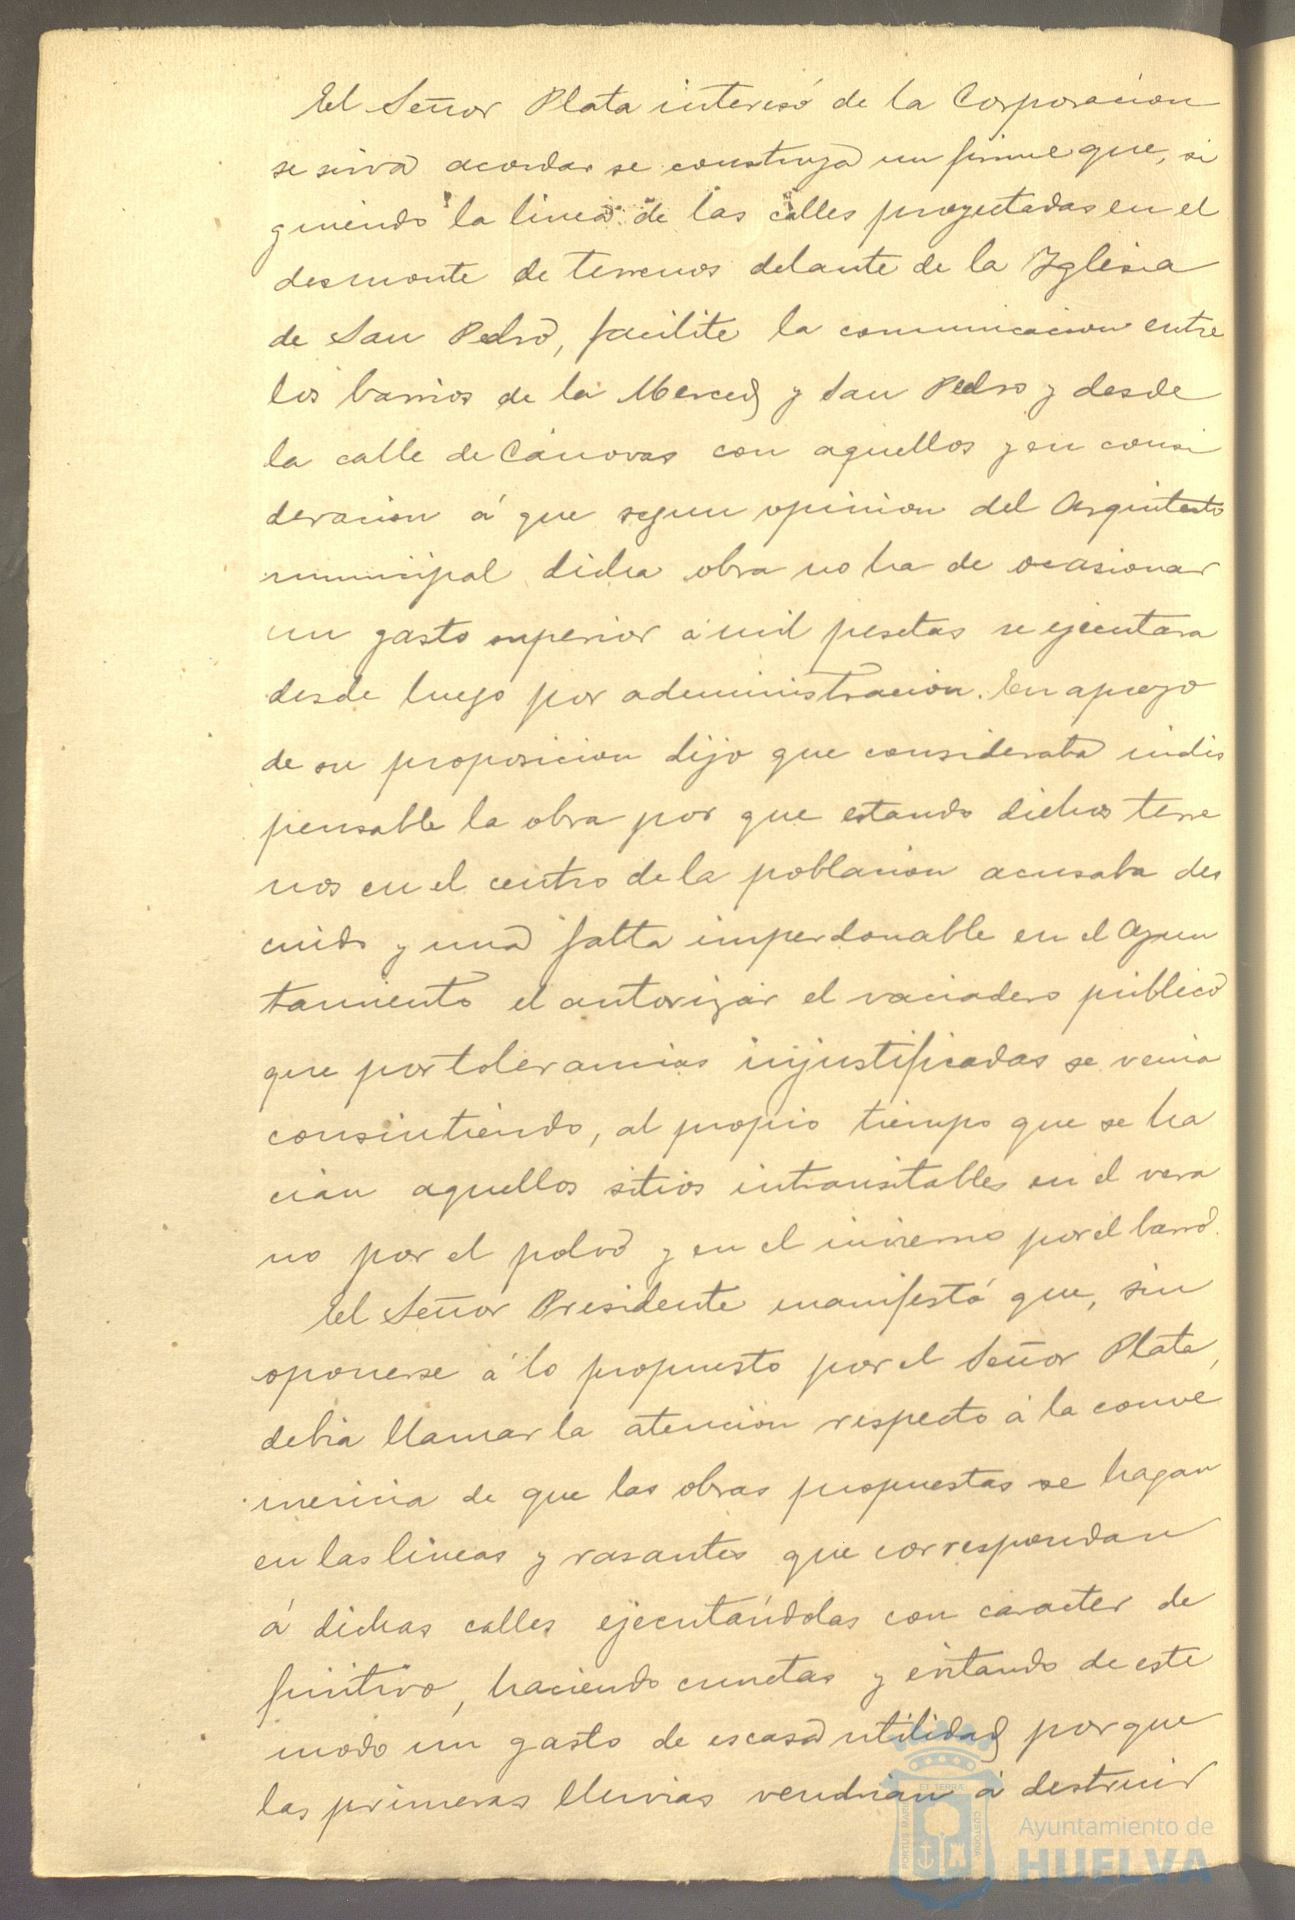 El Señor Plata interesó de la Corporacion
se sirva acordar se construya un firme que, si
guiendo la linea de las calles proyectadas en el
desmonte de terrenos delante de la Yglesia
de San Pedro, facilite la comunicacion entre
los barrios de la Merced y San Pedro y desde
la calle de Cánovas con aquellos y en consi
deracion á que segun opinion del Arquitecto
municipal dicha obra no ha de ocasionar
un gasto superior a mil pesetas se ejecutara
desde luego por administracion. En apoyo
de su proposicion dijo que consideraba indis
pensable la obra por que estando dichos terre
nos en el centro de la poblacion acusaba des
cuido y una falta imperdonable en el Ayun
tamiento el autorizar el vaciadero público
que por tolerancias injustificadas se venia
consintiendo, al propio tiempo que se ha
cian aquellos sitios intransitables en el vera
no por el polvo y en el invierno por el barro.
El Señor Presidente manifestó que, sin
oponerse á lo propuesto por el Señor Plata,
debia llamar la atencion respecto á la conve
niencia de que las obras propuestas se hagan
en las lineas y rasantes que correspondan
á dichas calles ejecutándolas con caracter de
finitivo, haciendo cunetas y evitando de este
modo un gasto de escasa utilidad porque
las primeras lluvias vendrian á destruir
ET TERRÆ
PORTUS MARIS
CUSTODIA
Ayuntamiento de
HUELVA